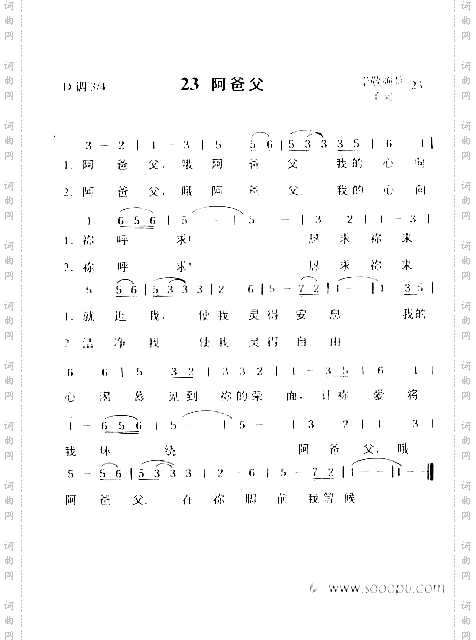 D 调 3/4
23 阿爸父
23
3 - 2 | 1 - 3 | 5 5 6 | 5 3 3 3 5 | 6 1
1. 阿 爸 父, 哦 阿 爸 父 我的 心 向
2. 阿 爸 父, 哦 阿 爸 父 我的 心 向
1 6 5 6 | 5 - - | 5 - - | 3 2 | 1 3
1. 祢 呼 求! 恳 求 祢 来
2. 祢 呼 求! 恳 求 祢 来
5 5 6 | 5 3 3 3 | 2 6 | 5 - 7 2 | 1 - | 1 3 5 |
1. 就 近 我, 使 我 灵 得 安 息 我的
2. 洁 净 我 使 我 灵 得 自 由
6 6 6 | 5 3 2 | 3 3 2 | 1 - 3 5 | 6 1
心 渴 慕 见 到 祢 的 荣 面, 让 祢 爱 将
1 - 6 5 6 | 5 - - | 5 - - | 3 2 | 1 3 |
我 环 绕 阿 爸 父, 哦
5 - 5 6 | 5 3 3 3 | 2 - 6 | 5 - 7 2 | 1 - - | 1 - -
阿 爸 父 在 你 脚 前 我 等 候
www.sooopu.com
词曲网